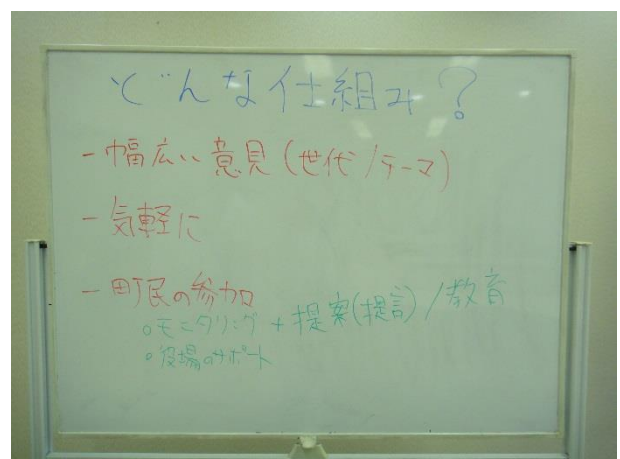 どんな仕組み?
- 幅広い意見(世代/テーマ)
- 気軽に
- 町民の参加
○モニタリング + 提案(提言)/教育
○役場のサポート